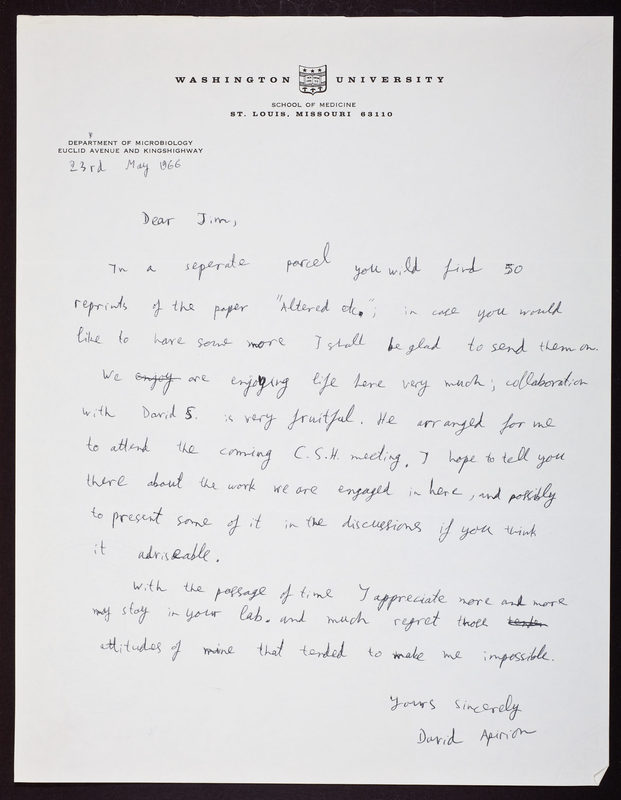 WASHINGTON UNIVERSITY
SCHOOL OF MEDICINE
ST. LOUIS, MISSOURI 63110
DEPARTMENT OF MICROBIOLOGY
EUCLID AVENUE AND KINGSHIGHWAY
23rd May 1966
Dear Jim,
In a seperate parcel you will find 50
reprints of the paper "Altered etc."; in case you would
like to have some more I shall be glad to send them on.
We enjoy are enjoying life here very much; collaboration
with David S. is very fruitful. He arranged for me
to attend the coming C.S.H. meeting. I hope to tell you
there about the work we are engaged in here, and possibly
to present some of it in the discussions if you think
it adviseable.
With the passage of time I appreciate more and more
my stay in your lab. and much regret those
attitudes of mine that tended to make me impossible.
Yours sincerely
David Apirion